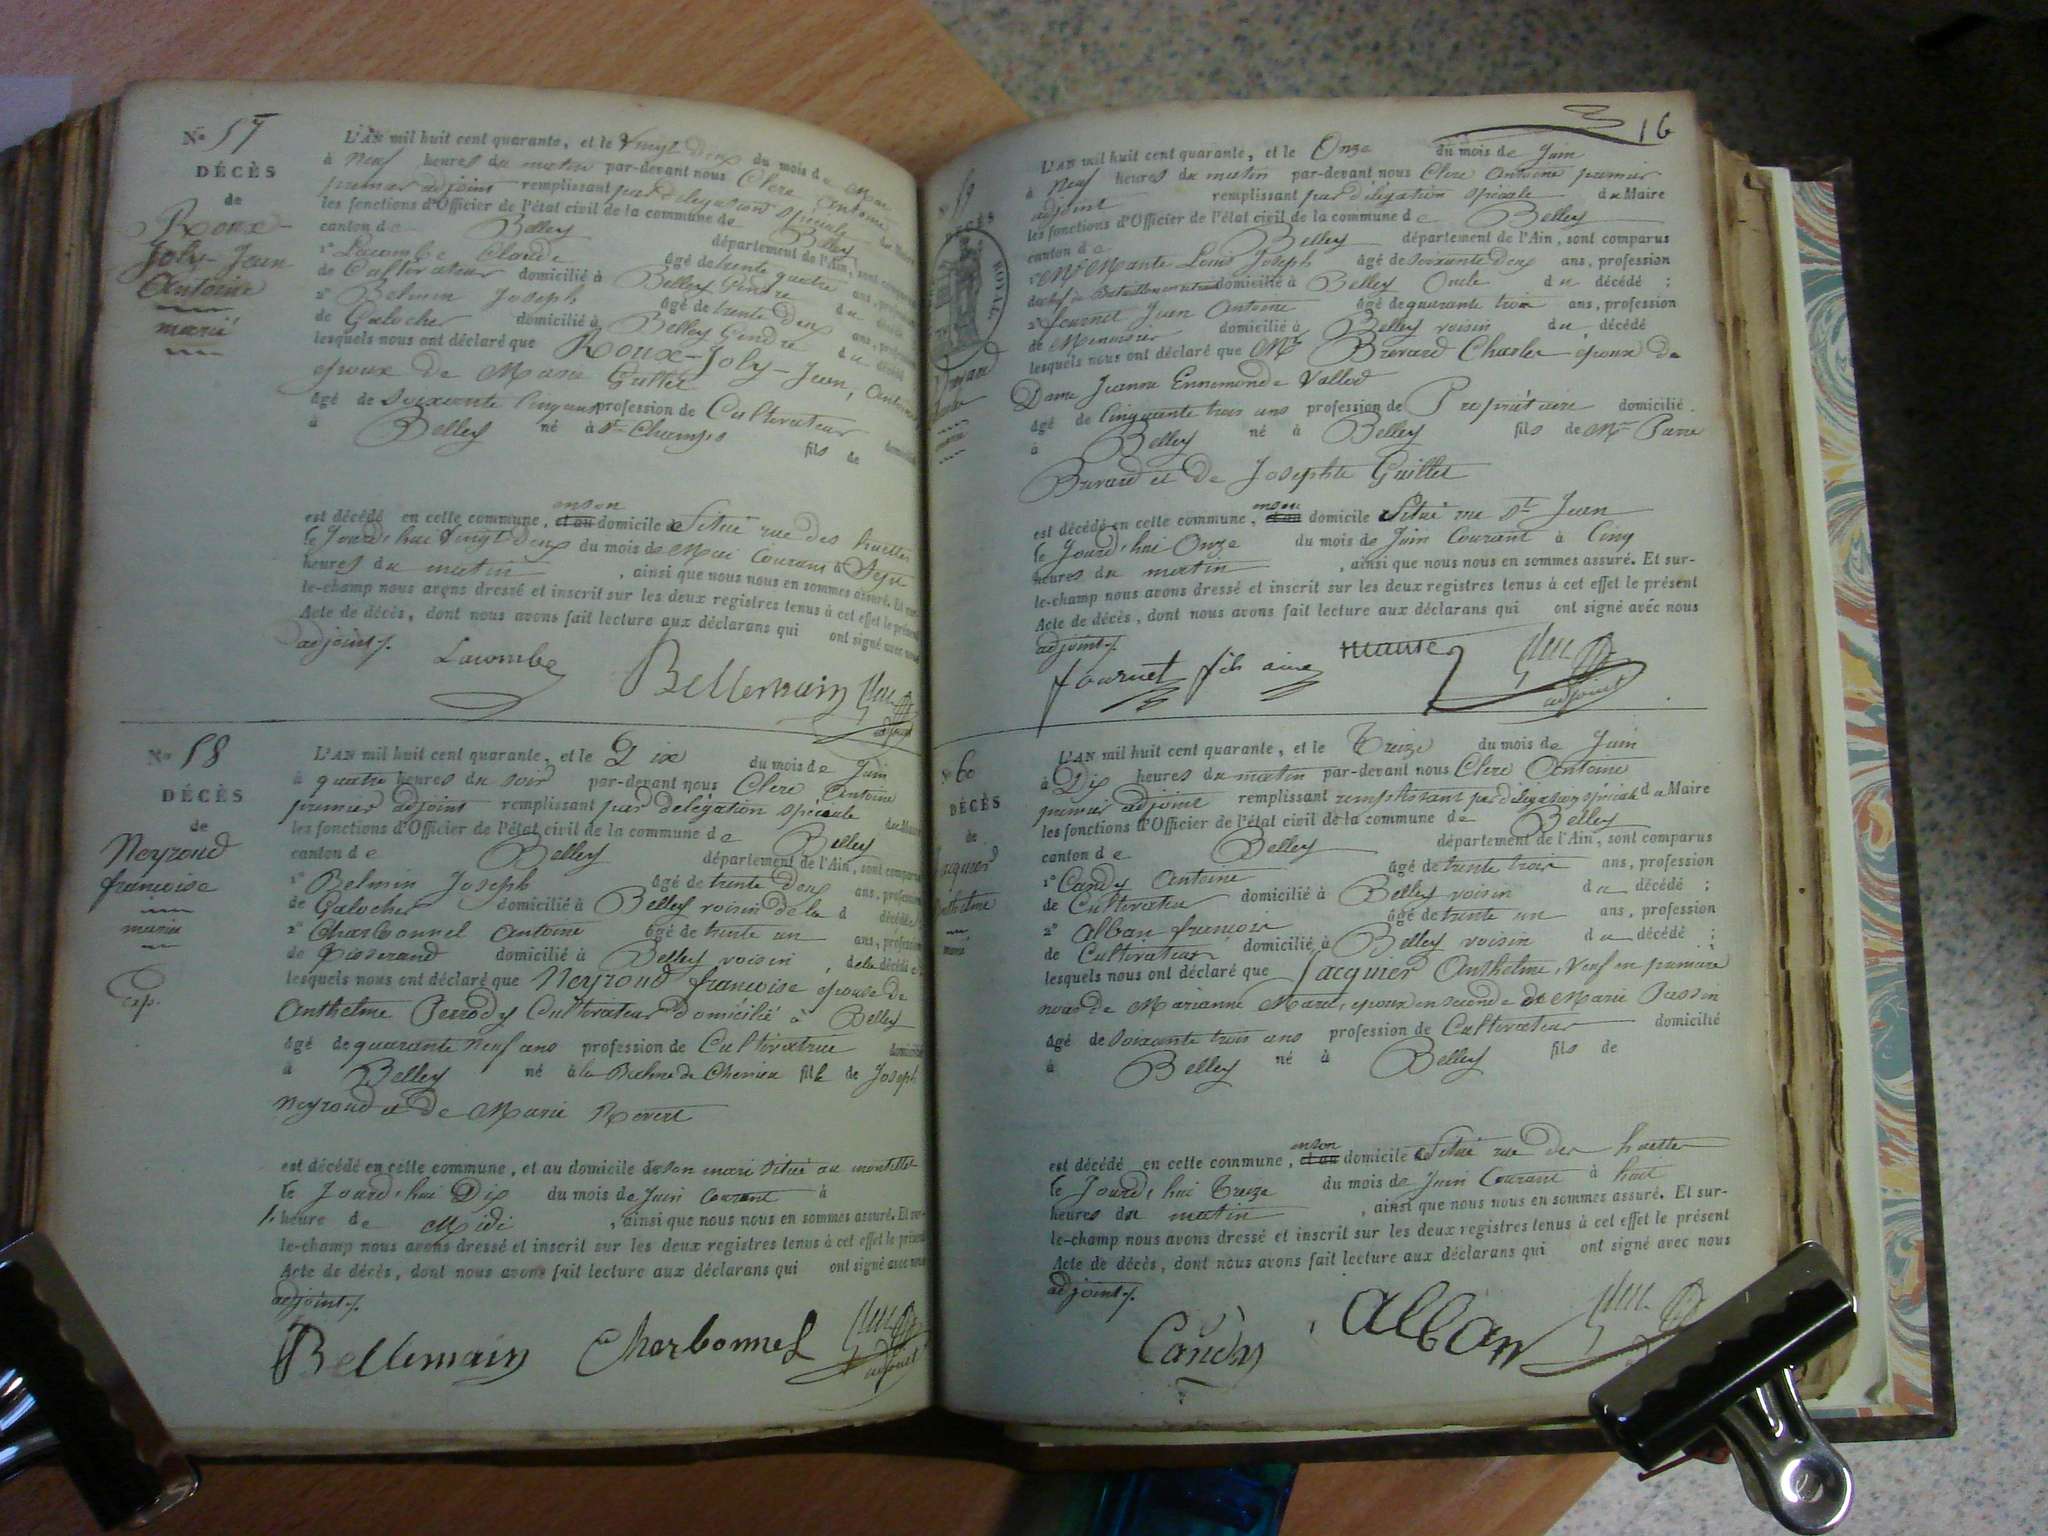 No 57
DÉCÈS
de
Roux-
Joly Jean
Antoine
marié
L'AN mil huit cent quarante, et le Vingt deux du mois de Mai
à neuf heures du matin par-devant nous Clerc Antoine
premier adjoint remplissant par délégation spéciale du Maire
les fonctions d'Officier de l'état civil de la commune de Belley
canton de Belley département de l'Ain, sont comparus
1° Lacombe Claude âgé de trente quatre ans, profession
de Cultivateur domicilié à Belley Gendre du décédé
2° Belmin Joseph âgé de trente deux ans, profession
de Galocher domicilié à Belley Gendre du décédé
lesquels nous ont déclaré que Roux-Joly-Jean, Antoine
époux de Marie Guillet
âgé de soixante cinq ans profession de Cultivateur domicilié
à Belley né à St Champs fils de
est décédé en cette commune, en son et au domicile situé rue des huettes
le Jourd'hui Vingt deux du mois de Mai Courant à Sept
heures du matin, ainsi que nous nous en sommes assuré. Et sur-
le-champ nous avons dressé et inscrit sur les deux registres tenus à cet effet le présent
Acte de décès, dont nous avons fait lecture aux déclarans qui ont signé avec nous
adjoint.
Lacombe Bellemain Clerc
adjoint
No 58
DÉCÈS
de
Neyroud
françoise
mariée
exp.
L'AN mil huit cent quarante, et le Dix du mois de Juin
à quatre heures du soir par-devant nous Clerc Antoine
premier adjoint remplissant par délégation spéciale du Maire
les fonctions d'Officier de l'état civil de la commune de Belley
canton de Belley département de l'Ain, sont comparus
1° Belmin Joseph âgé de trente deux ans, profession
de Galocher domicilié à Belley voisin de la d décédée
2° Charbonnel Antoine âgé de trente un ans, profession
de Tisserand domicilié à Belley voisin, de la décédée
lesquels nous ont déclaré que Neyroud françoise épouse de
Anthelme Perrody Cultivateur domicilié à Belley
âgé de quarante neuf ans profession de Cultivatrice domicilié
à Belley né à la Balme de fille de Joseph
Neyroud et de Marie Revert
est décédé en cette commune, et au domicile de son mari situé au montillet
le Jourd'hui Dix du mois de Juin courant à
1. heure de Midi, ainsi que nous nous en sommes assuré. Et sur-
le-champ nous avons dressé et inscrit sur les deux registres tenus à cet effet le présent
Acte de décès, dont nous avons fait lecture aux déclarans qui ont signé avec nous
adjoint.
Bellemain Charbonnel Clerc
adjoint
16
59
DÉCÈS
ROYAL
L'AN mil huit cent quarante, et le Onze du mois de Juin
à neuf heures du matin par-devant nous Clerc Antoine premier
adjoint remplissant par délégation spéciale du Maire
les fonctions d'Officier de l'état civil de la commune de Belley
canton de Belley département de l'Ain, sont comparus
1° Mr Mante Louis Joseph âgé de soixante deux ans, profession
de chef de Bataillon en retraite domicilié à Belley Oncle du décédé ;
2° fournet Jean Antoine âgé de quarante trois ans, profession
de Menuisier domicilié à Belley voisin du décédé
lesquels nous ont déclaré que Mr Brevard Charles époux de
Dame Jeanne Ennemonde Vallod
âgé de Cinquante trois ans profession de Propriétaire domicilié
à Belley né à Belley fils de Mr Pierre
Brevard et de Josephte Guillet
est décédé en cette commune, en son et au domicile situé rue St Jean
le Jourd'hui Onze du mois de Juin Courant à Cinq
heures du matin, ainsi que nous nous en sommes assuré. Et sur-
le-champ nous avons dressé et inscrit sur les deux registres tenus à cet effet le présent
Acte de décès, dont nous avons fait lecture aux déclarans qui ont signé avec nous
adjoint.
fournet fils ainé Mante Clerc
adjoint
No 60
DÉCÈS
de
Jacquier
Anthelme
marié
L'AN mil huit cent quarante, et le Treize du mois de Juin
à Dix heures du matin par-devant nous Clerc Antoine
premier adjoint remplissant remplissant par délégation spéciale du Maire
les fonctions d'Officier de l'état civil de la commune de Belley
canton de Belley département de l'Ain, sont comparus
1° Candy Antoine âgé de trente trois ans, profession
de Cultivateur domicilié à Belley voisin du décédé ;
2° Alban françois âgé de trente un ans, profession
de Cultivateur domicilié à Belley voisin du décédé ;
lesquels nous ont déclaré que Jacquier Anthelme, Veuf en premiere
noces de Marianne Marie, époux en seconde de Marie Passin
âgé de soixante trois ans profession de Cultivateur domicilié
à Belley né à Belley fils de
est décédé en cette commune, en son et au domicile situé rue des huettes
le Jourd'hui Treize du mois de Juin Courant à huit
heures du matin, ainsi que nous nous en sommes assuré. Et sur-
le-champ nous avons dressé et inscrit sur les deux registres tenus à cet effet le présent
Acte de décès, dont nous avons fait lecture aux déclarans qui ont signé avec nous
adjoint.
Candy Alban Clerc